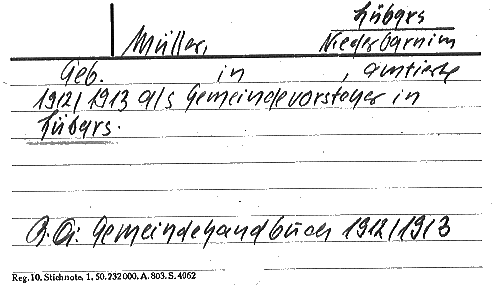 Lübars
Müller, Niederbarnim
Geb. in , amtierte
1912/1913 als Gemeindevorsteher in
Lübars.
B. A.: Gemeindehandbuch 1912/1913
Reg. 10. Stichnote, 1, 50. 232000. A. 803. S. 4062